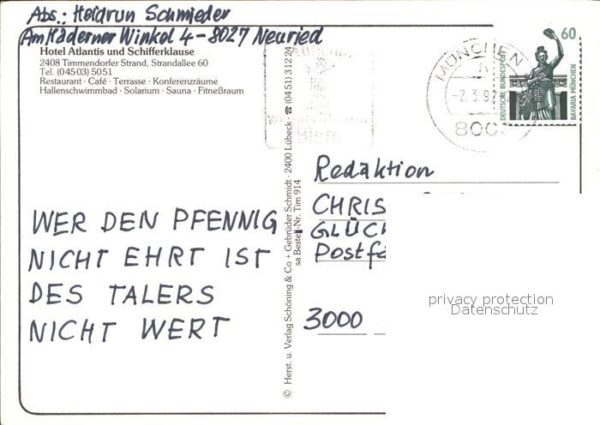 Abs.: Heidrun Schmieder
Am Haderner Winkel 4 - 8027 Neuried
Hotel Atlantis und Schifferklause
2408 Timmendorfer Strand, Strandallee 60
Tel. (04503) 5051
Restaurant · Café · Terrasse · Konferenzräume
Hallenschwimmbad · Solarium · Sauna · Fitneßraum
WER DEN PFENNIG
NICHT EHRT IST
DES TALERS
NICHT WERT
© Herst. u. Verlag Schöning & Co + Gebrüder Schmidt · 2400 Lübeck · ☎ (0451) 31224
sa Bestell-Nr. Tim 914
MÜNCHEN
-2.3.9
800
60
DEUTSCHE BUNDESPOST
BAVARIA MÜNCHEN
Redaktion
CHRIS
GLÜC
Postfa
3000
privacy protection
Datenschutz